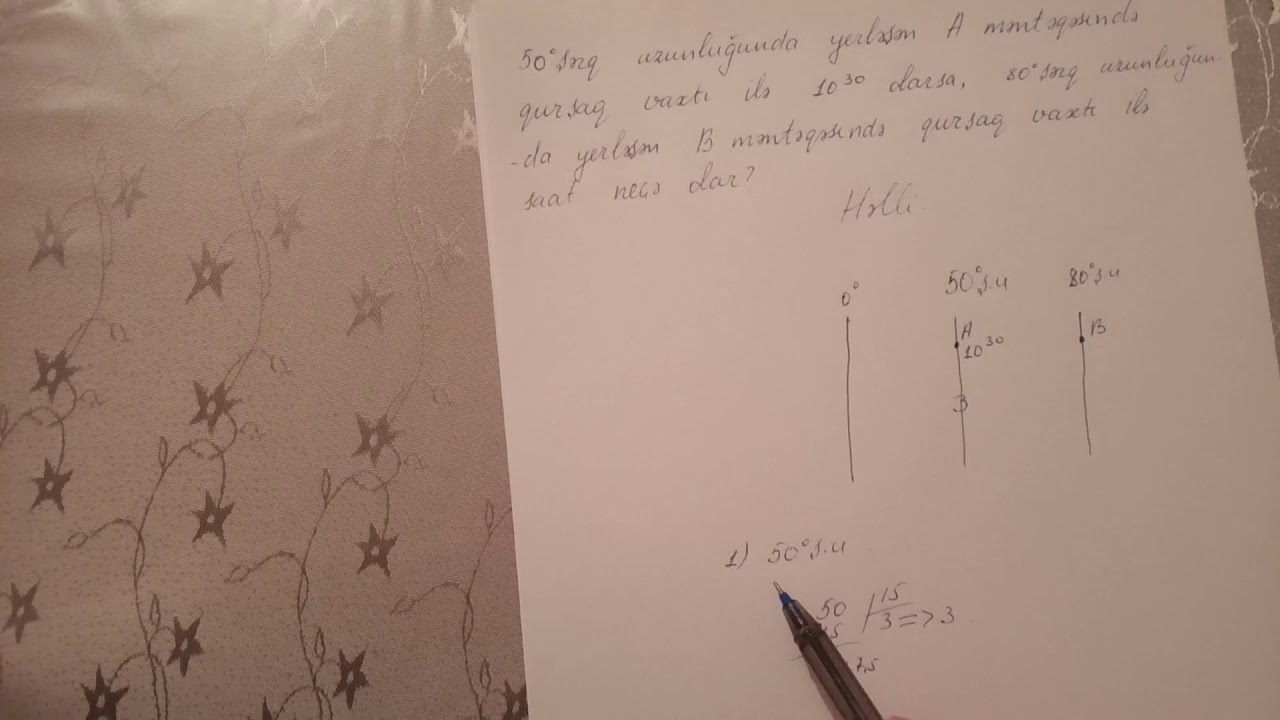 50° şərq uzunluğunda yerləşən A məntəqəsində
qurşaq vaxtı ilə 10³⁰ olarsa, 80° şərq uzunluğun
-da yerləşən B məntəqəsində qurşaq vaxtı ilə
saat neçə olar?
Həlli.
0° 50°ş.u 80°ş.u
A B
10³⁰
3
1) 50°ş.u
50 15
3 => 3
7,5